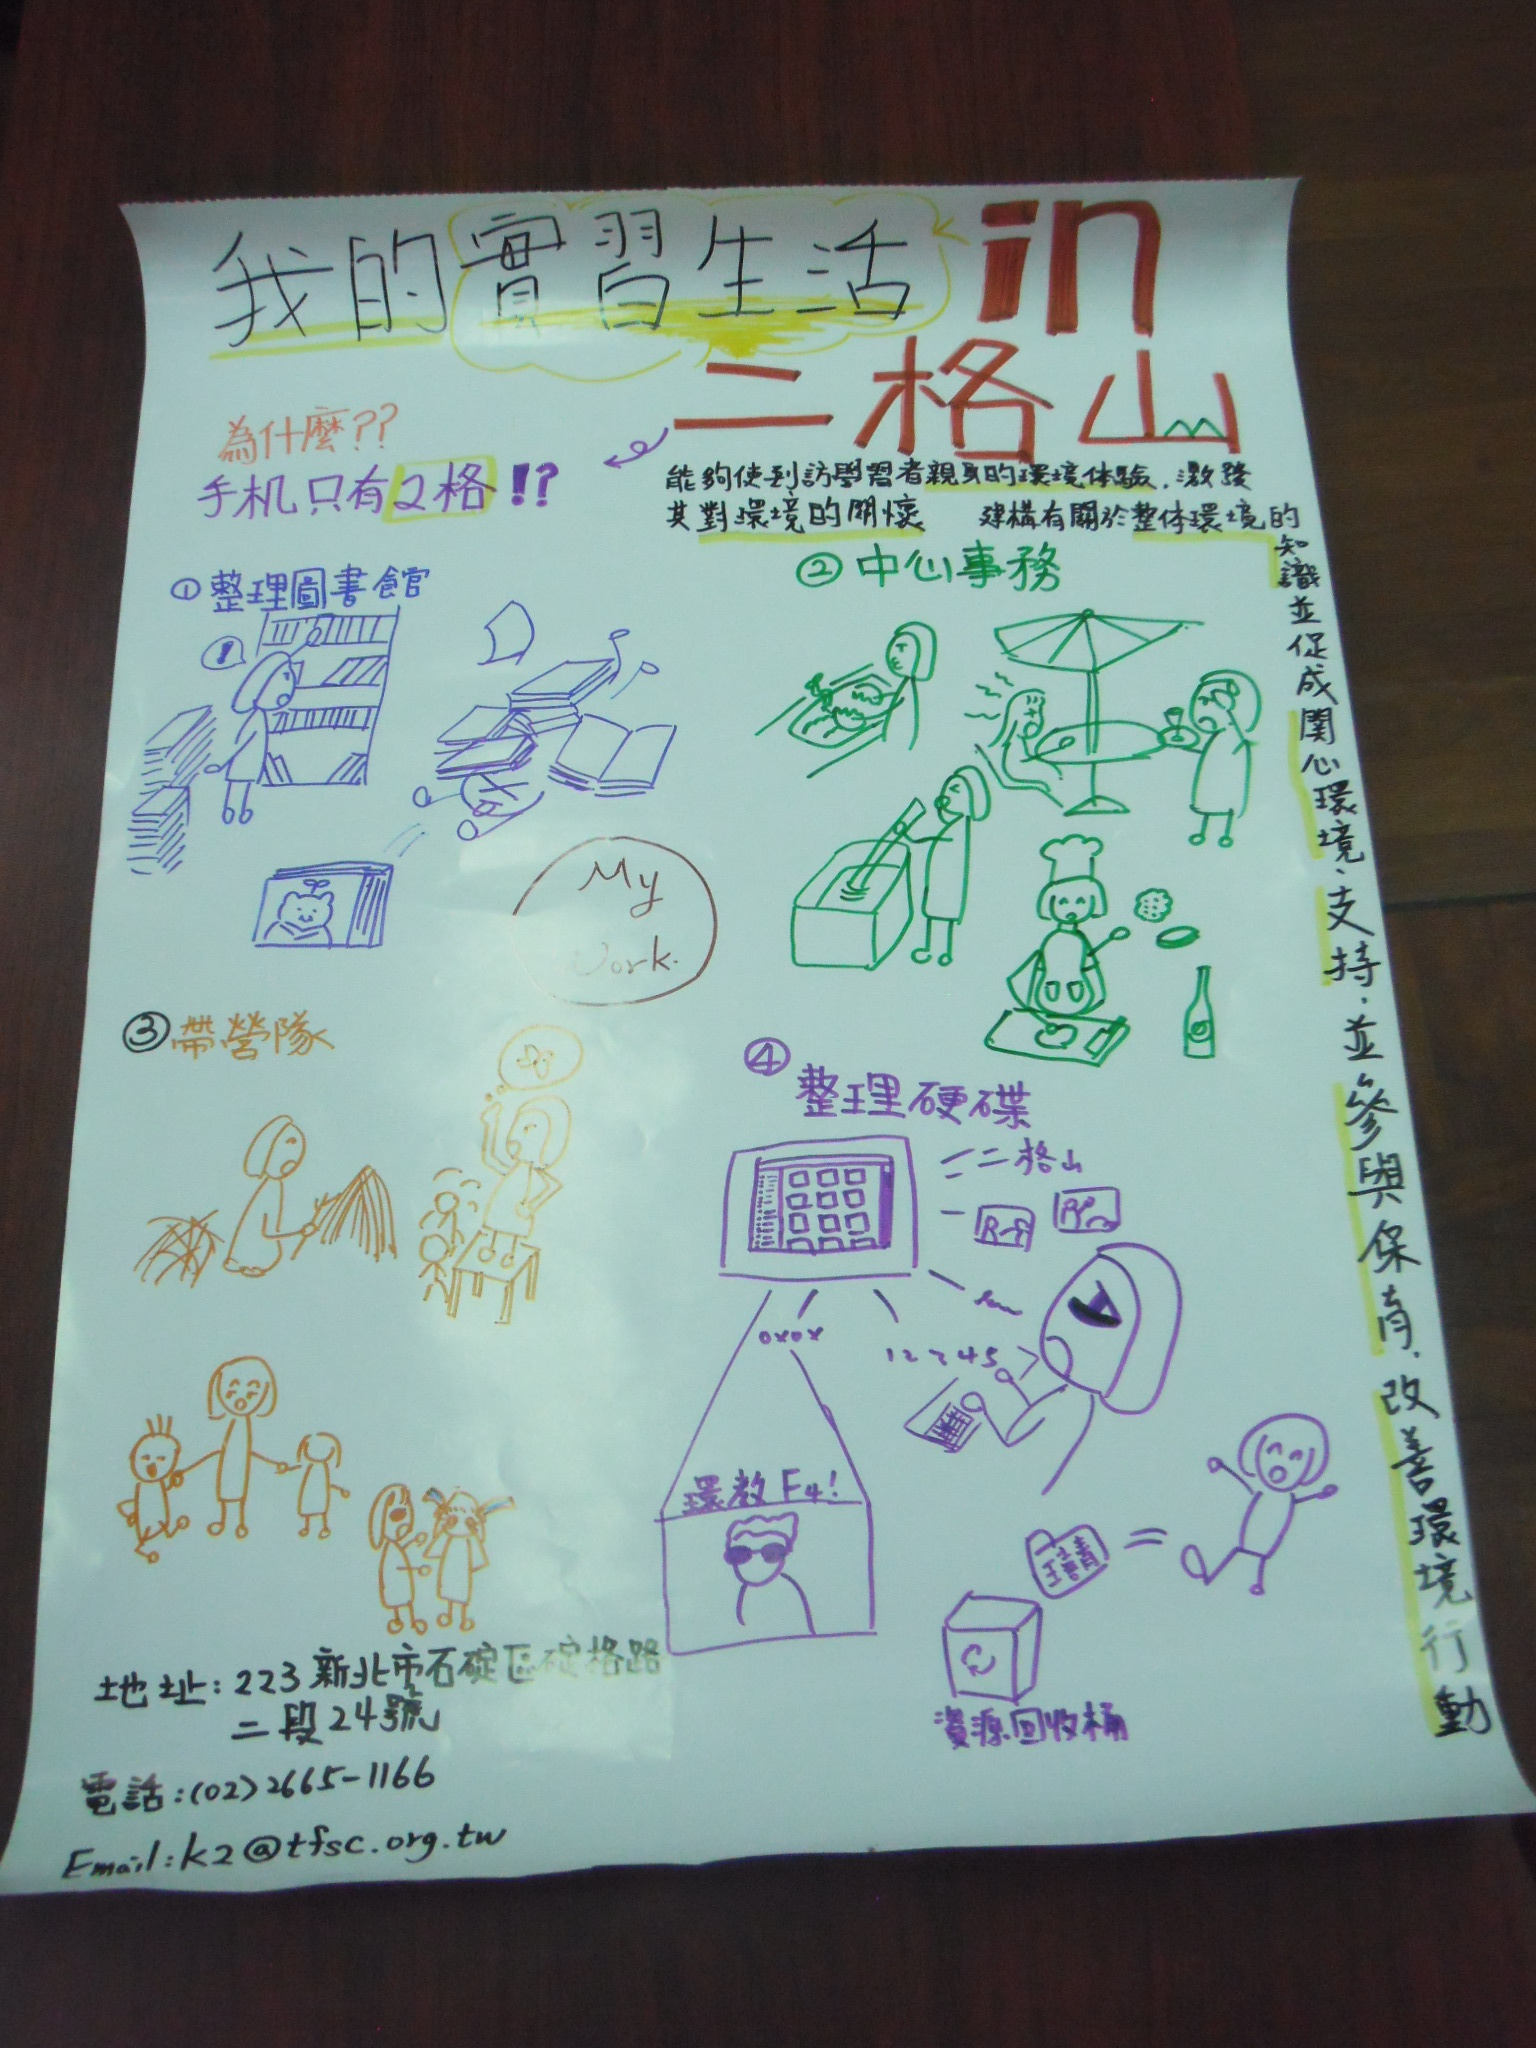 我的實習生活 in
二格山
為什麼??
手机只有2格!?
能夠使到訪學習者親身的環境体驗,激發
其對環境的關懷 建構有關於整体環境的
知識並促成関心環境、支持,並參與保育,改善環境行動
①整理圖書館
!
②中心事務
My
Work.
③帶營隊
④整理硬碟
二格山
oxox
1 2 3 4 5
環教F4!
資源回收桶
地址:223新北市石碇區碇格路
二段24號
電話:(02)2665-1166
Email:k2@tfsc.org.tw